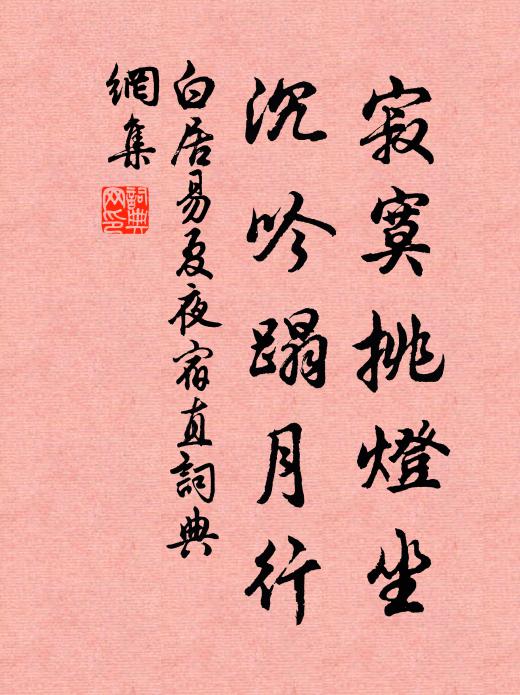 寂寞挑燈坐
沉吟蹋月行
白居易夏夜宿直詞典
網集
詞典網印